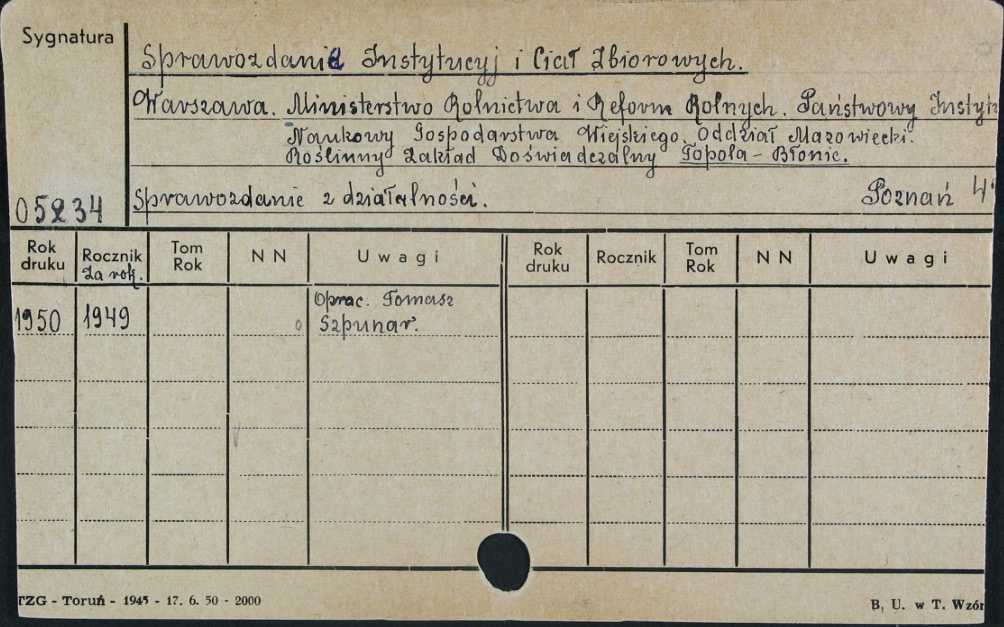 Sygnatura
Sprawozdanie Instytucyj i Ciał Zbiorowych.
Warszawa. Ministerstwo Rolnictwa i Reform Rolnych. Państwowy Instyt
Naukowy Gospodarstwa Wiejskiego. Oddział Mazowiecki.
Roślinny Zakład Doświadczalny Topola - Błonie.
05234 Sprawozdanie z działalności. Poznań 4°
Rok druku Rocznik Tom Rok N N U w a g i Rok druku Rocznik Tom Rok N N U w a g i
Za rok.
1950 1949 0 Oprac. Tomasz
Szpunar.
TZG - Toruń - 1945 - 17. 6. 50 - 2000 B. U. w T. Wzór